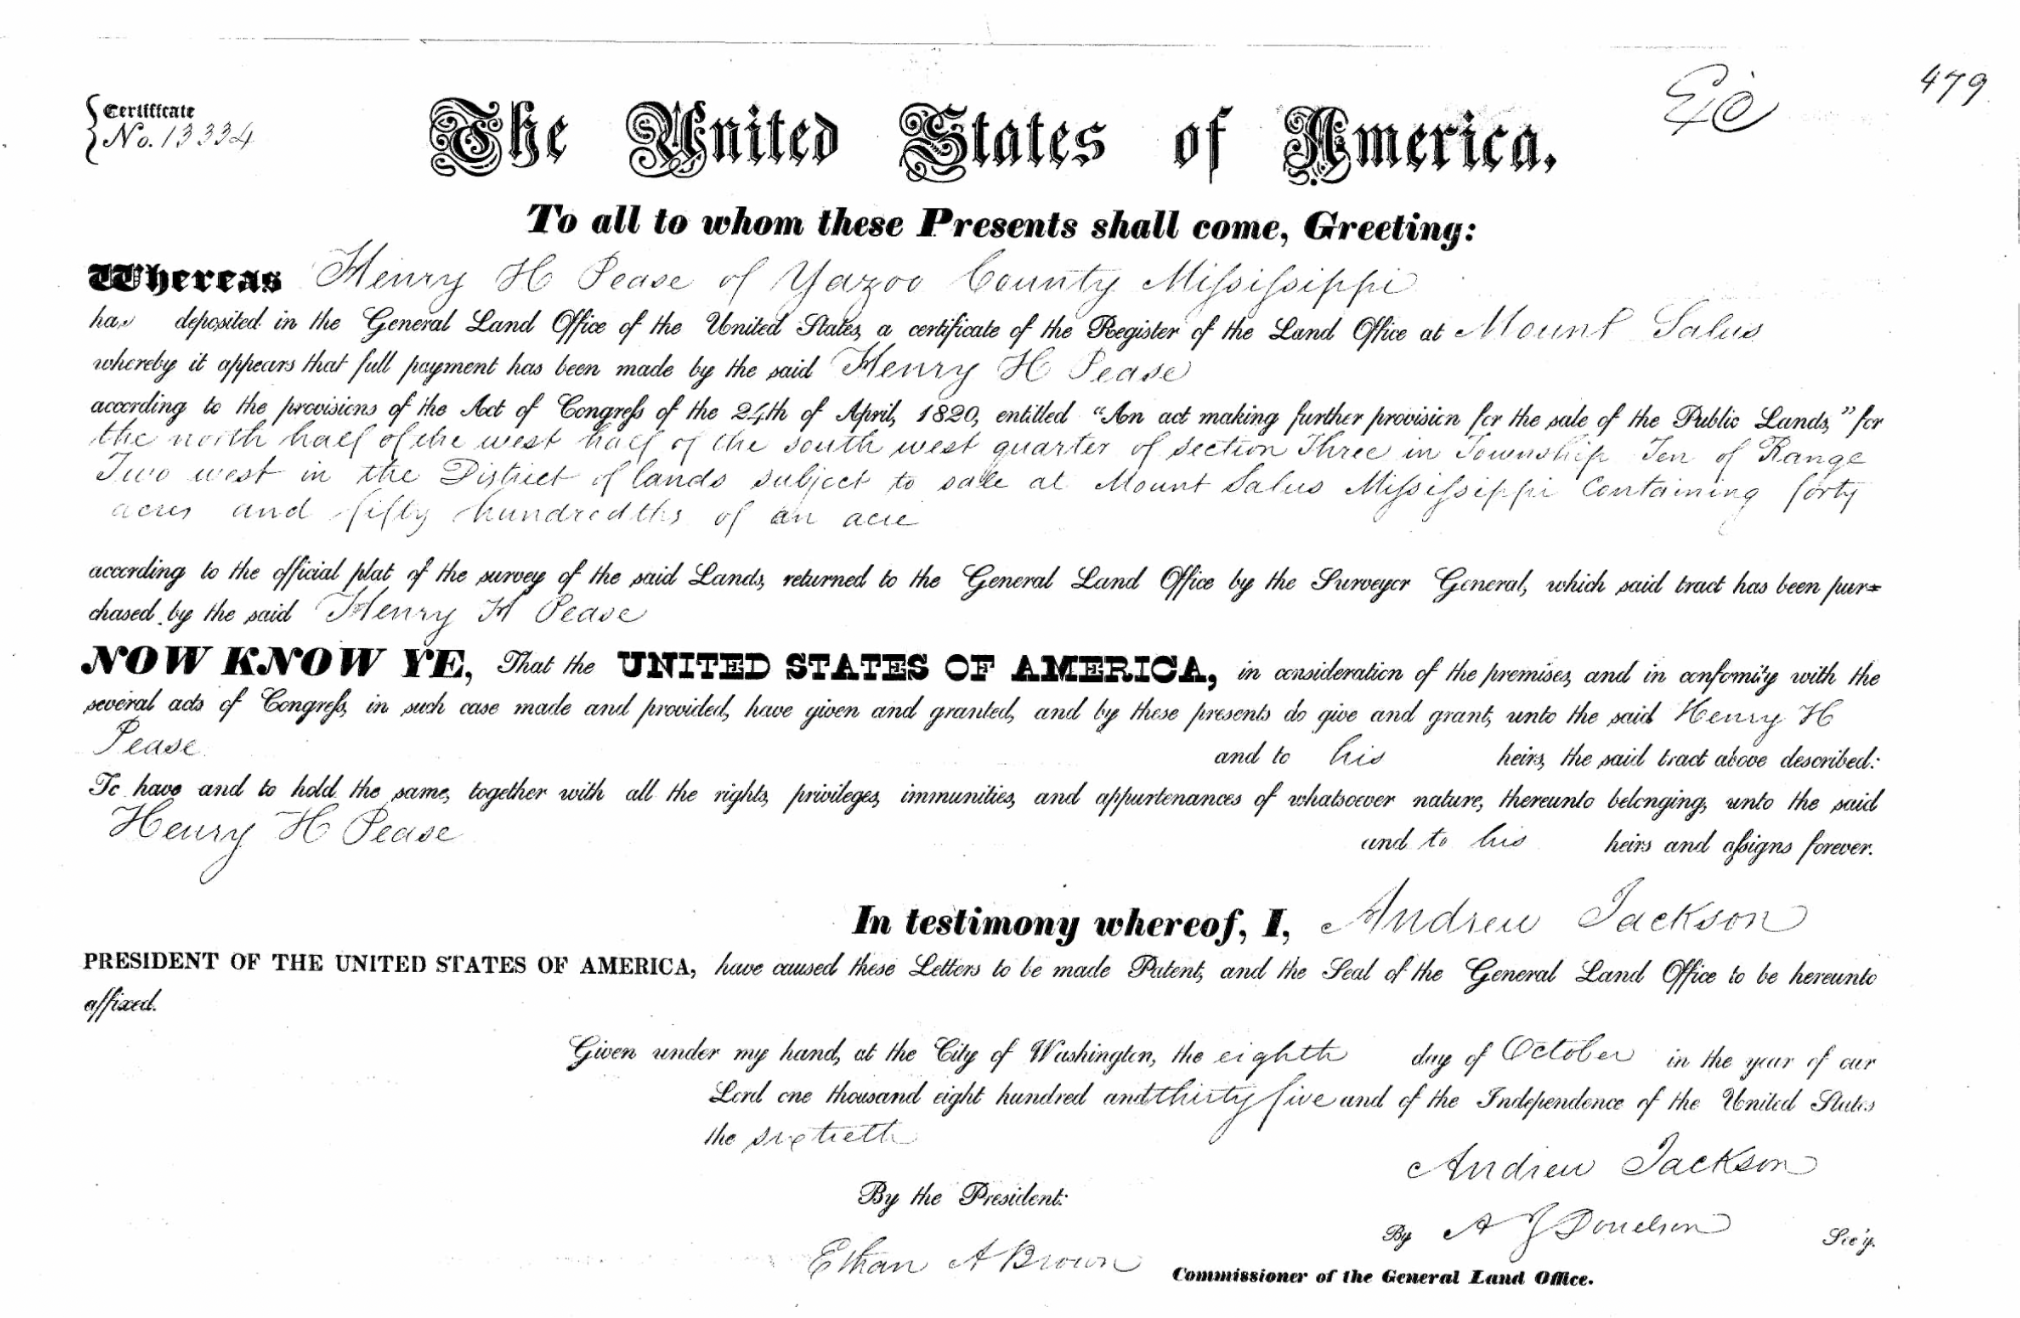 479
Certificate
No. 13334
The United States of America,
To all to whom these Presents shall come, Greeting:
Whereas Henry H Pease of Yazoo County Mississippi
has deposited in the General Land Office of the United States, a certificate of the Register of the Land Office at Mount Salus
whereby it appears that full payment has been made by the said Henry H Pease
according to the provisions of the Act of Congress of the 24th of April, 1820, entitled "An act making further provision for the sale of the Public Lands," for
the north half of the west half of the south west quarter of section Three in Township Ten of Range
Two west in the District of lands subject to sale at Mount Salus Mississippi Containing forty
acres and fifty hundredths of an acre
according to the official plat of the survey of the said Lands, returned to the General Land Office by the Surveyor General, which said tract has been pur=
chased by the said Henry H Pease
NOW KNOW YE, That the UNITED STATES OF AMERICA, in consideration of the premises, and in conformity with the
several acts of Congress, in such case made and provided, have given and granted, and by these presents do give and grant, unto the said Henry H
Pease and to his heirs, the said tract above described:
To have and to hold the same, together with all the rights, privileges, immunities, and appurtenances of whatsoever nature, thereunto belonging, unto the said
Henry H Pease and to his heirs and assigns forever.
In testimony whereof, I, Andrew Jackson
PRESIDENT OF THE UNITED STATES OF AMERICA, have caused these Letters to be made Patent, and the Seal of the General Land Office to be hereunto
affixed.
Given under my hand, at the City of Washington, the eighth day of October in the year of our
Lord one thousand eight hundred and thirty five and of the Independence of the United States
the sixtieth
Andrew Jackson
By the President:
By A J Donelson Sec'y.
Ethan A Brown
Commissioner of the General Land Office.